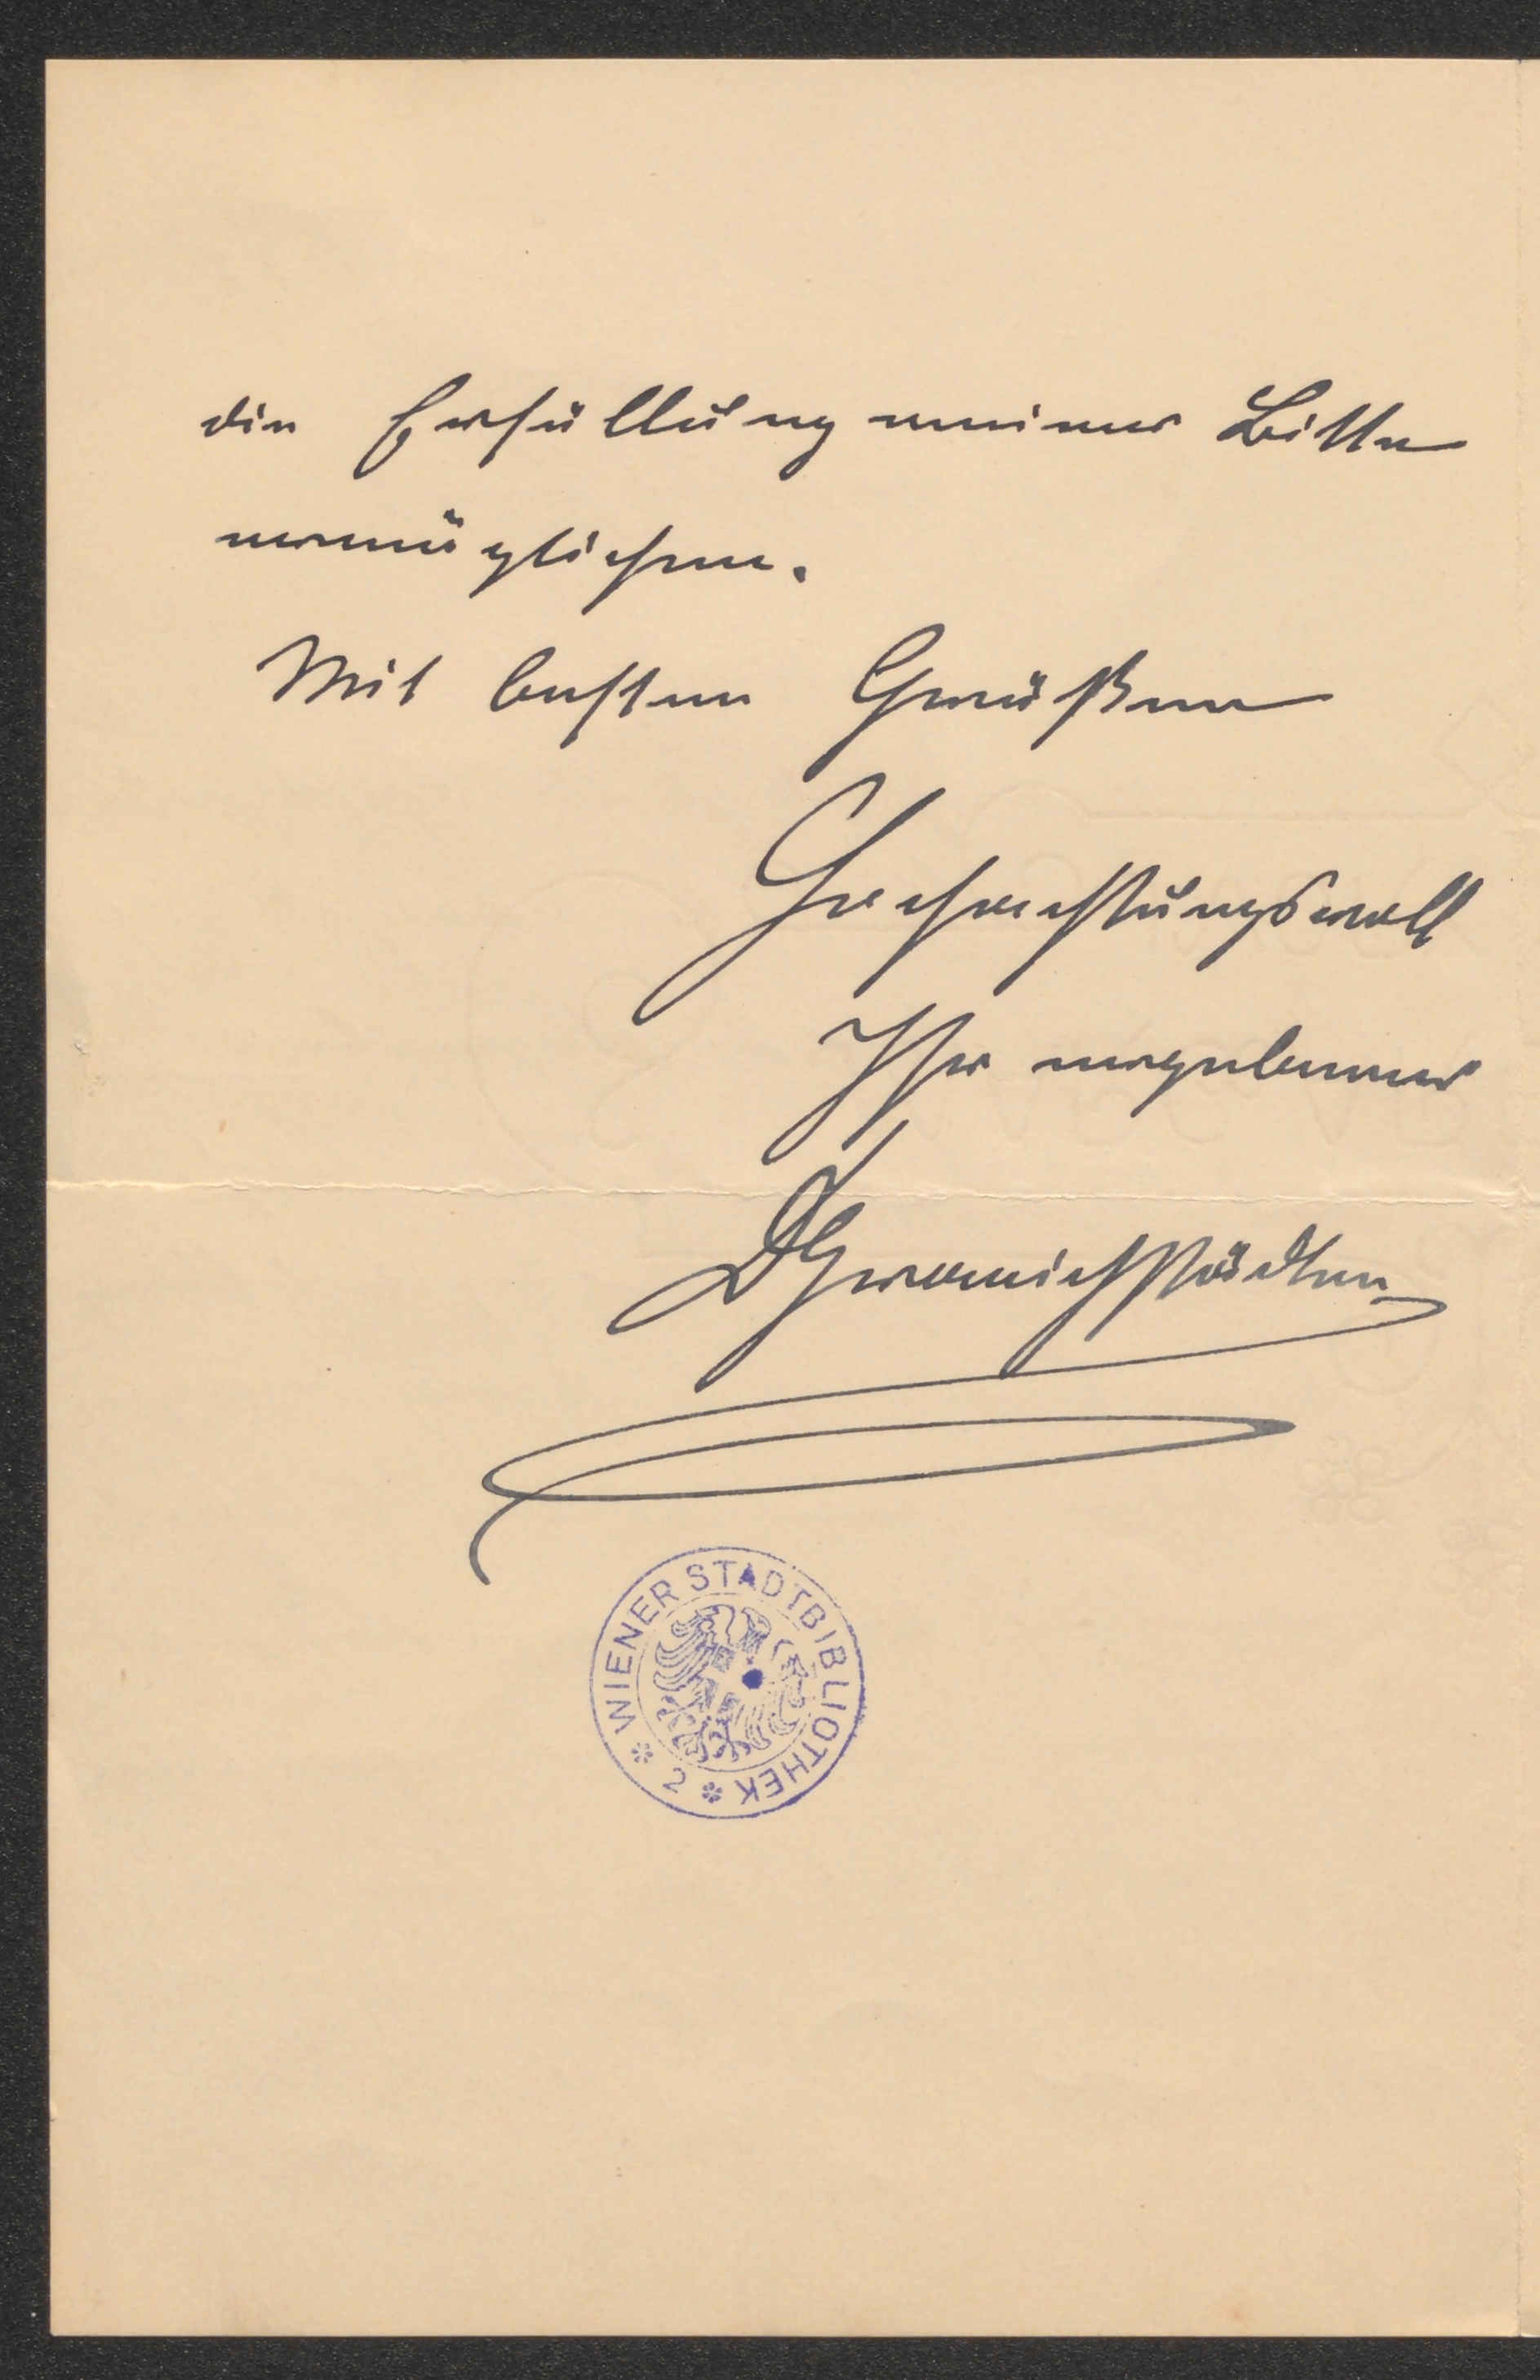 die Erfüllung meiner Bitte
ermöglichen.
Mit besten Grüßen
Hochachtungsvoll
Ihr ergebener
WIENER STADTBIBLIOTHEK
2